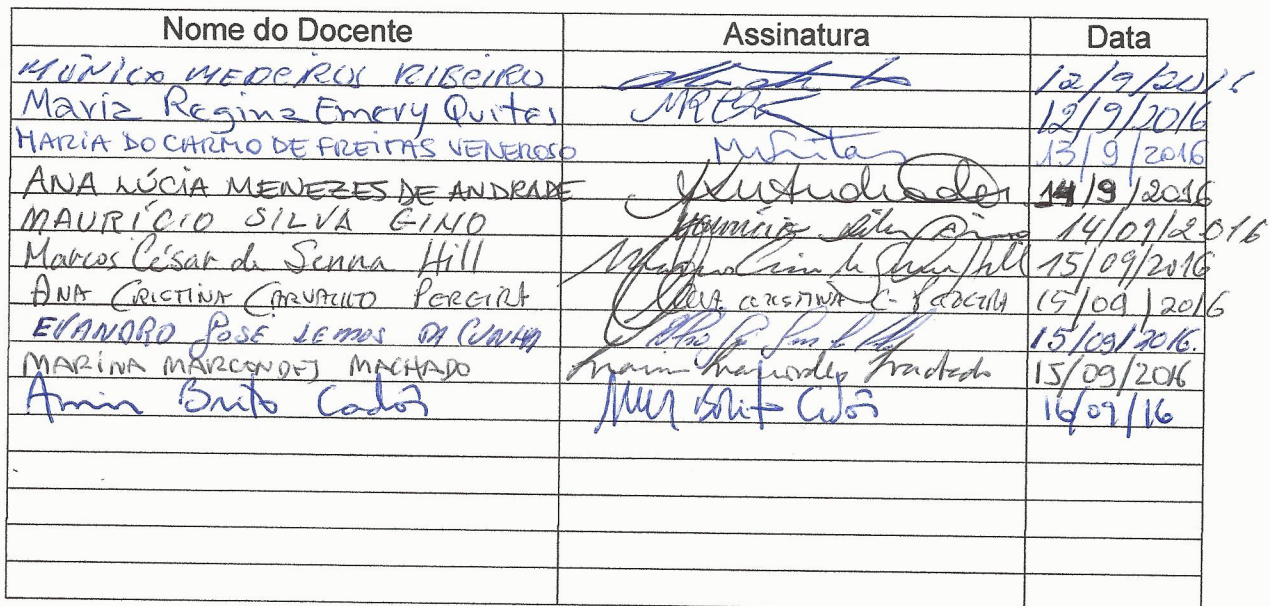 Nome do Docente Assinatura Data
MÔNICA MEDEIROS RIBEIRO 12/9/2016
Maria Regina Emery Quites 12/9/2016
MARIA DO CARMO DE FREITAS VENEROSO 13/9/2016
ANA LÚCIA MENEZES DE ANDRADE 14/9/2016
MAURÍCIO SILVA GINO Maurício Silva Gino 14/09/2016
Marcos César de Senna Hill 15/09/2016
ANA CRISTINA CARVALHO PEREIRA ANA CRISTINA C. PEREIRA 15/09/2016
EVANDRO JOSÉ LEMOS DA CUNHA 15/09/2016.
MARINA MARCONDES MACHADO Marina Marcondes Machado 15/09/2016
Amir Brito Cadôr Amir Brito Cadôr 16/09/16